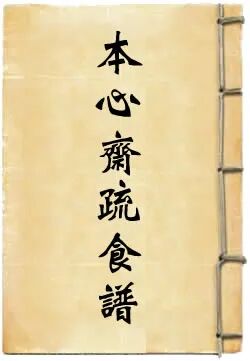 本心齋疏食譜